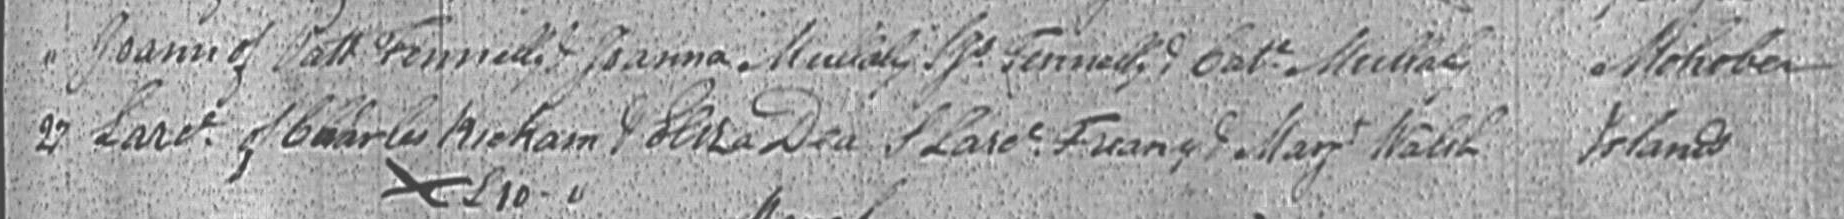 " Joanna of Patt Fennelly & Joanna Mullaly Sps. Fennelly & Cate. Mullaly Mohober
27 Larce. of Charles Kickam & Eliza Dea S Larce. & Margt Walsh Islands
£10 - "